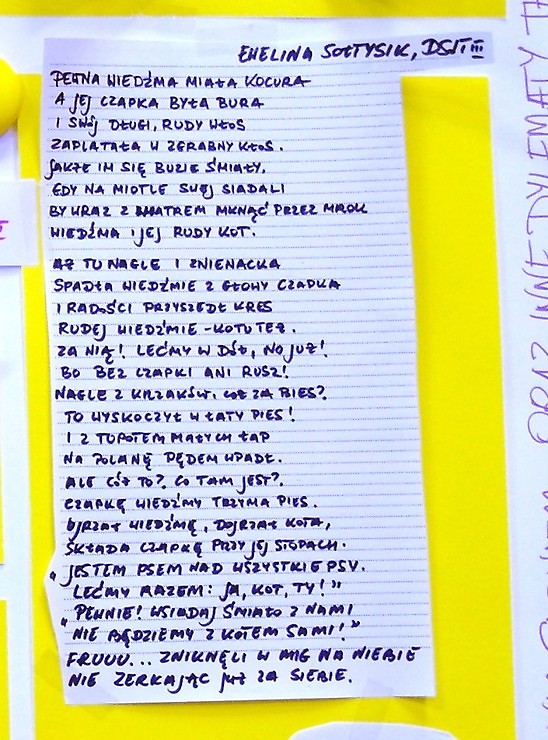 EWELINA SOŁTYSIK, DSIT III
PEWNA WIEDŹMA MIAŁA KOCURA
A JEJ CZAPKA BYŁA BURA
I SWÓJ DŁUGI, RUDY WŁOS
ZAPLATAŁA W ZGRABNY KŁOS.
JAKŻE IM SIĘ BUZIE ŚMIAŁY,
GDY NA MIOTLE SWEJ SIADALI
BY WRAZ Z WIATREM MKNĄĆ PRZEZ MROK
WIEDŹMA I JEJ RUDY KOT.
AŻ TU NAGLE I ZNIENACKA
SPADŁA WIEDŹMIE Z GŁOWY CZAPKA
I RADOŚCI PRZYSZEDŁ KRES
RUDEJ WIEDŹMIE - KOTU TEŻ.
ZA NIĄ! LEĆMY W DÓŁ, NO JUŻ!
BO BEZ CZAPKI ANI RUSZ!
NAGLE Z KRZAKÓW, CÓŻ ZA BIES?
TO WYSKOCZYŁ W ŁATY PIES!
I Z TUPOTEM MAŁYCH ŁAP
NA POLANĘ PĘDEM WPADŁ.
ALE CÓŻ TO? CO TAM JEST?
CZAPKĘ WIEDŹMY TRZYMA PIES.
UJRZAŁ WIEDŹMĘ, DOJRZAŁ KOTA,
SKŁADA CZAPKĘ PRZY JEJ STOPACH.
"JESTEM PSEM NAD WSZYSTKIE PSY.
LEĆMY RAZEM: JA, KOT, TY!"
"PEWNIE! WSIADAJ ŚMIAŁO Z NAMI
NIE BĘDZIEMY Z KOTEM SAMI!"
FRUUU... ZNIKNĘLI W MIG NA NIEBIE
NIE ZERKAJĄC JUŻ ZA SIEBIE.
ORAZ INNE DYLEMATY